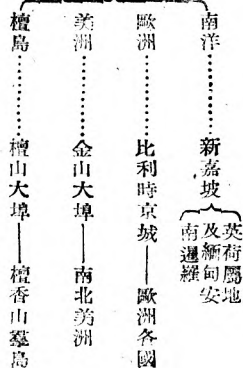 南洋………新嘉坡 英荷屬地及緬甸安南暹羅
歐洲………比利時京城——歐洲各國
美洲………金山大埠——南北美洲
檀島………檀山大埠——檀香山羣島